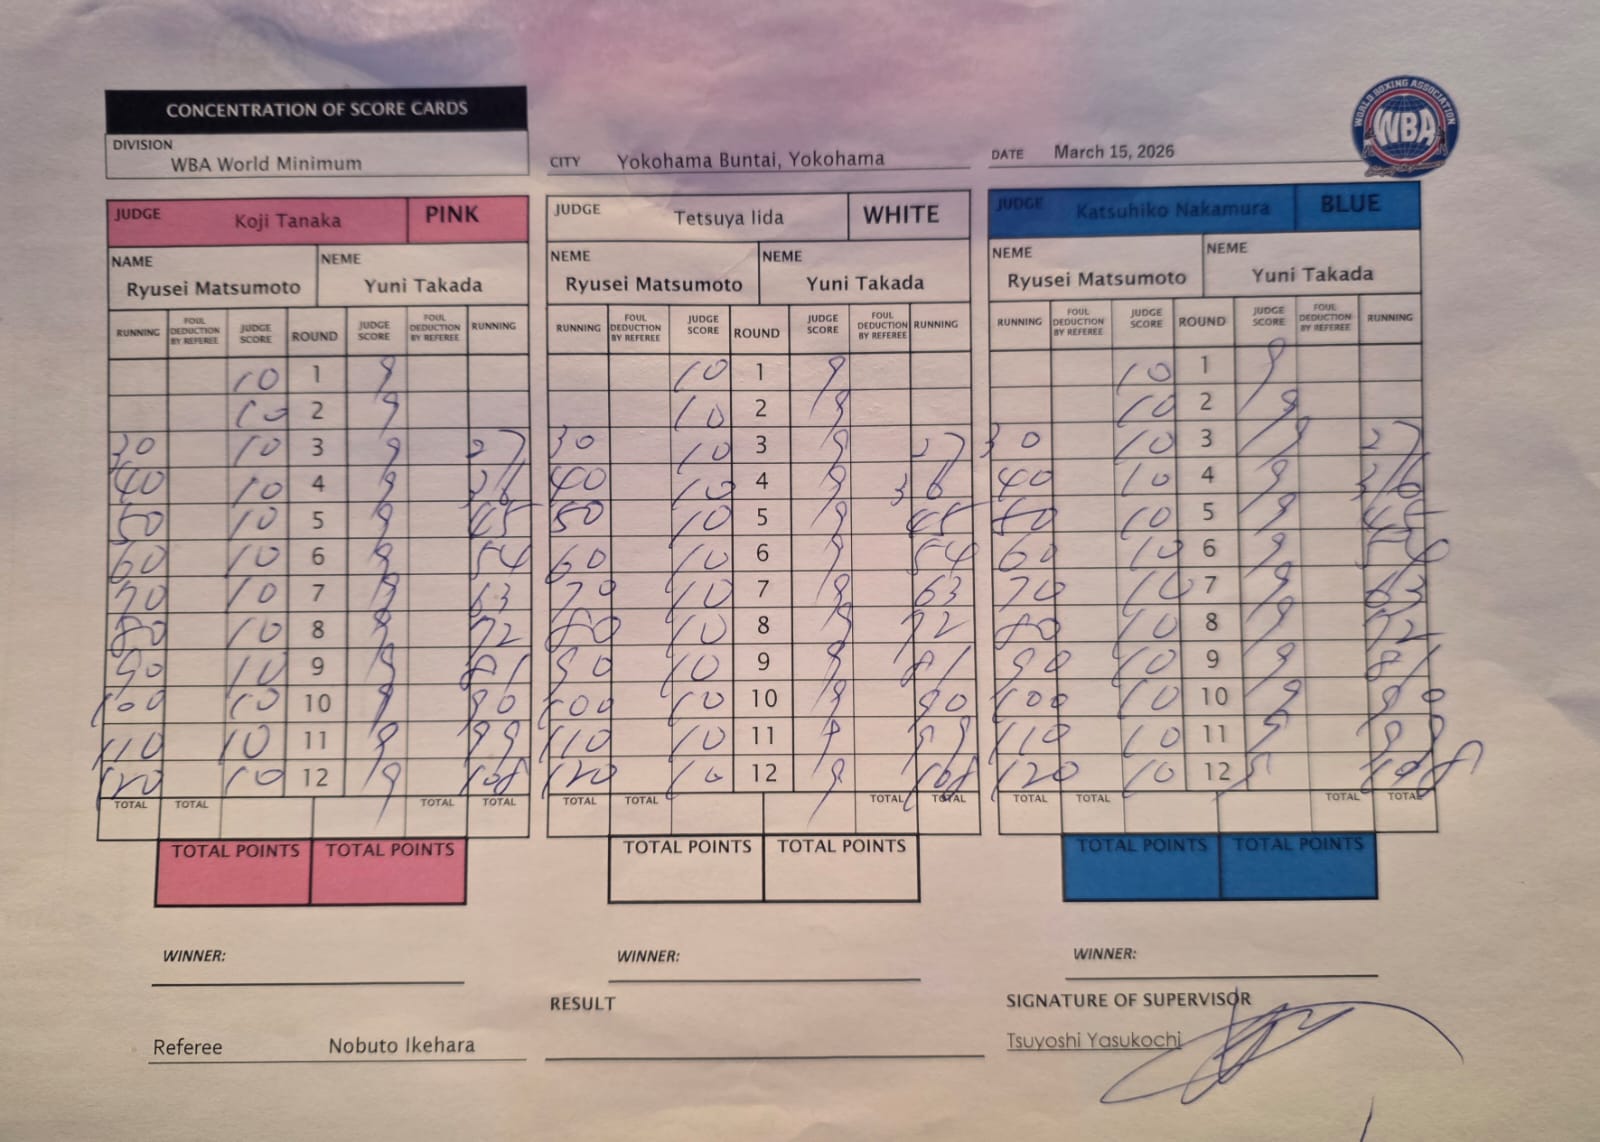 CONCENTRATION OF SCORE CARDS
DIVISION
WBA World Minimum
CITY Yokohama Buntai, Yokohama
DATE March 15, 2026
WORLD BOXING ASSOCIATION
WBA
JUDGE Koji Tanaka PINK
NAME NEME
Ryusei Matsumoto Yuni Takada
RUNNING FOUL DEDUCTION BY REFEREE JUDGE SCORE ROUND JUDGE SCORE FOUL DEDUCTION BY REFEREE RUNNING
10 1 9
10 2 9
30 10 3 9 27
40 10 4 9 36
50 10 5 9 45
60 10 6 9 54
70 10 7 9 63
80 10 8 9 72
90 10 9 9 81
100 10 10 9 90
110 10 11 9 99
120 10 12 9 108
TOTAL TOTAL TOTAL TOTAL
TOTAL POINTS TOTAL POINTS
WINNER:
JUDGE Tetsuya Iida WHITE
NEME NEME
Ryusei Matsumoto Yuni Takada
RUNNING FOUL DEDUCTION BY REFEREE JUDGE SCORE ROUND JUDGE SCORE FOUL DEDUCTION BY REFEREE RUNNING
10 1 9
10 2 9
30 10 3 9 27
40 10 4 9 36
50 10 5 9 45
60 10 6 9 54
70 10 7 9 63
80 10 8 9 72
90 10 9 9 81
100 10 10 9 90
110 10 11 9 99
120 10 12 9 108
TOTAL TOTAL TOTAL TOTAL
TOTAL POINTS TOTAL POINTS
WINNER:
JUDGE Katsuhiko Nakamura BLUE
NEME NEME
Ryusei Matsumoto Yuni Takada
RUNNING FOUL DEDUCTION BY REFEREE JUDGE SCORE ROUND JUDGE SCORE FOUL DEDUCTION BY REFEREE RUNNING
10 1 9
10 2 9
30 10 3 9 27
40 10 4 9 36
50 10 5 9 45
60 10 6 9 54
70 10 7 9 63
80 10 8 9 72
90 10 9 9 81
100 10 10 9 90
110 10 11 9 99
120 10 12 9 108
TOTAL TOTAL TOTAL TOTAL
TOTAL POINTS TOTAL POINTS
WINNER:
RESULT
SIGNATURE OF SUPERVISOR
Referee Nobuto Ikehara
Tsuyoshi Yasukochi